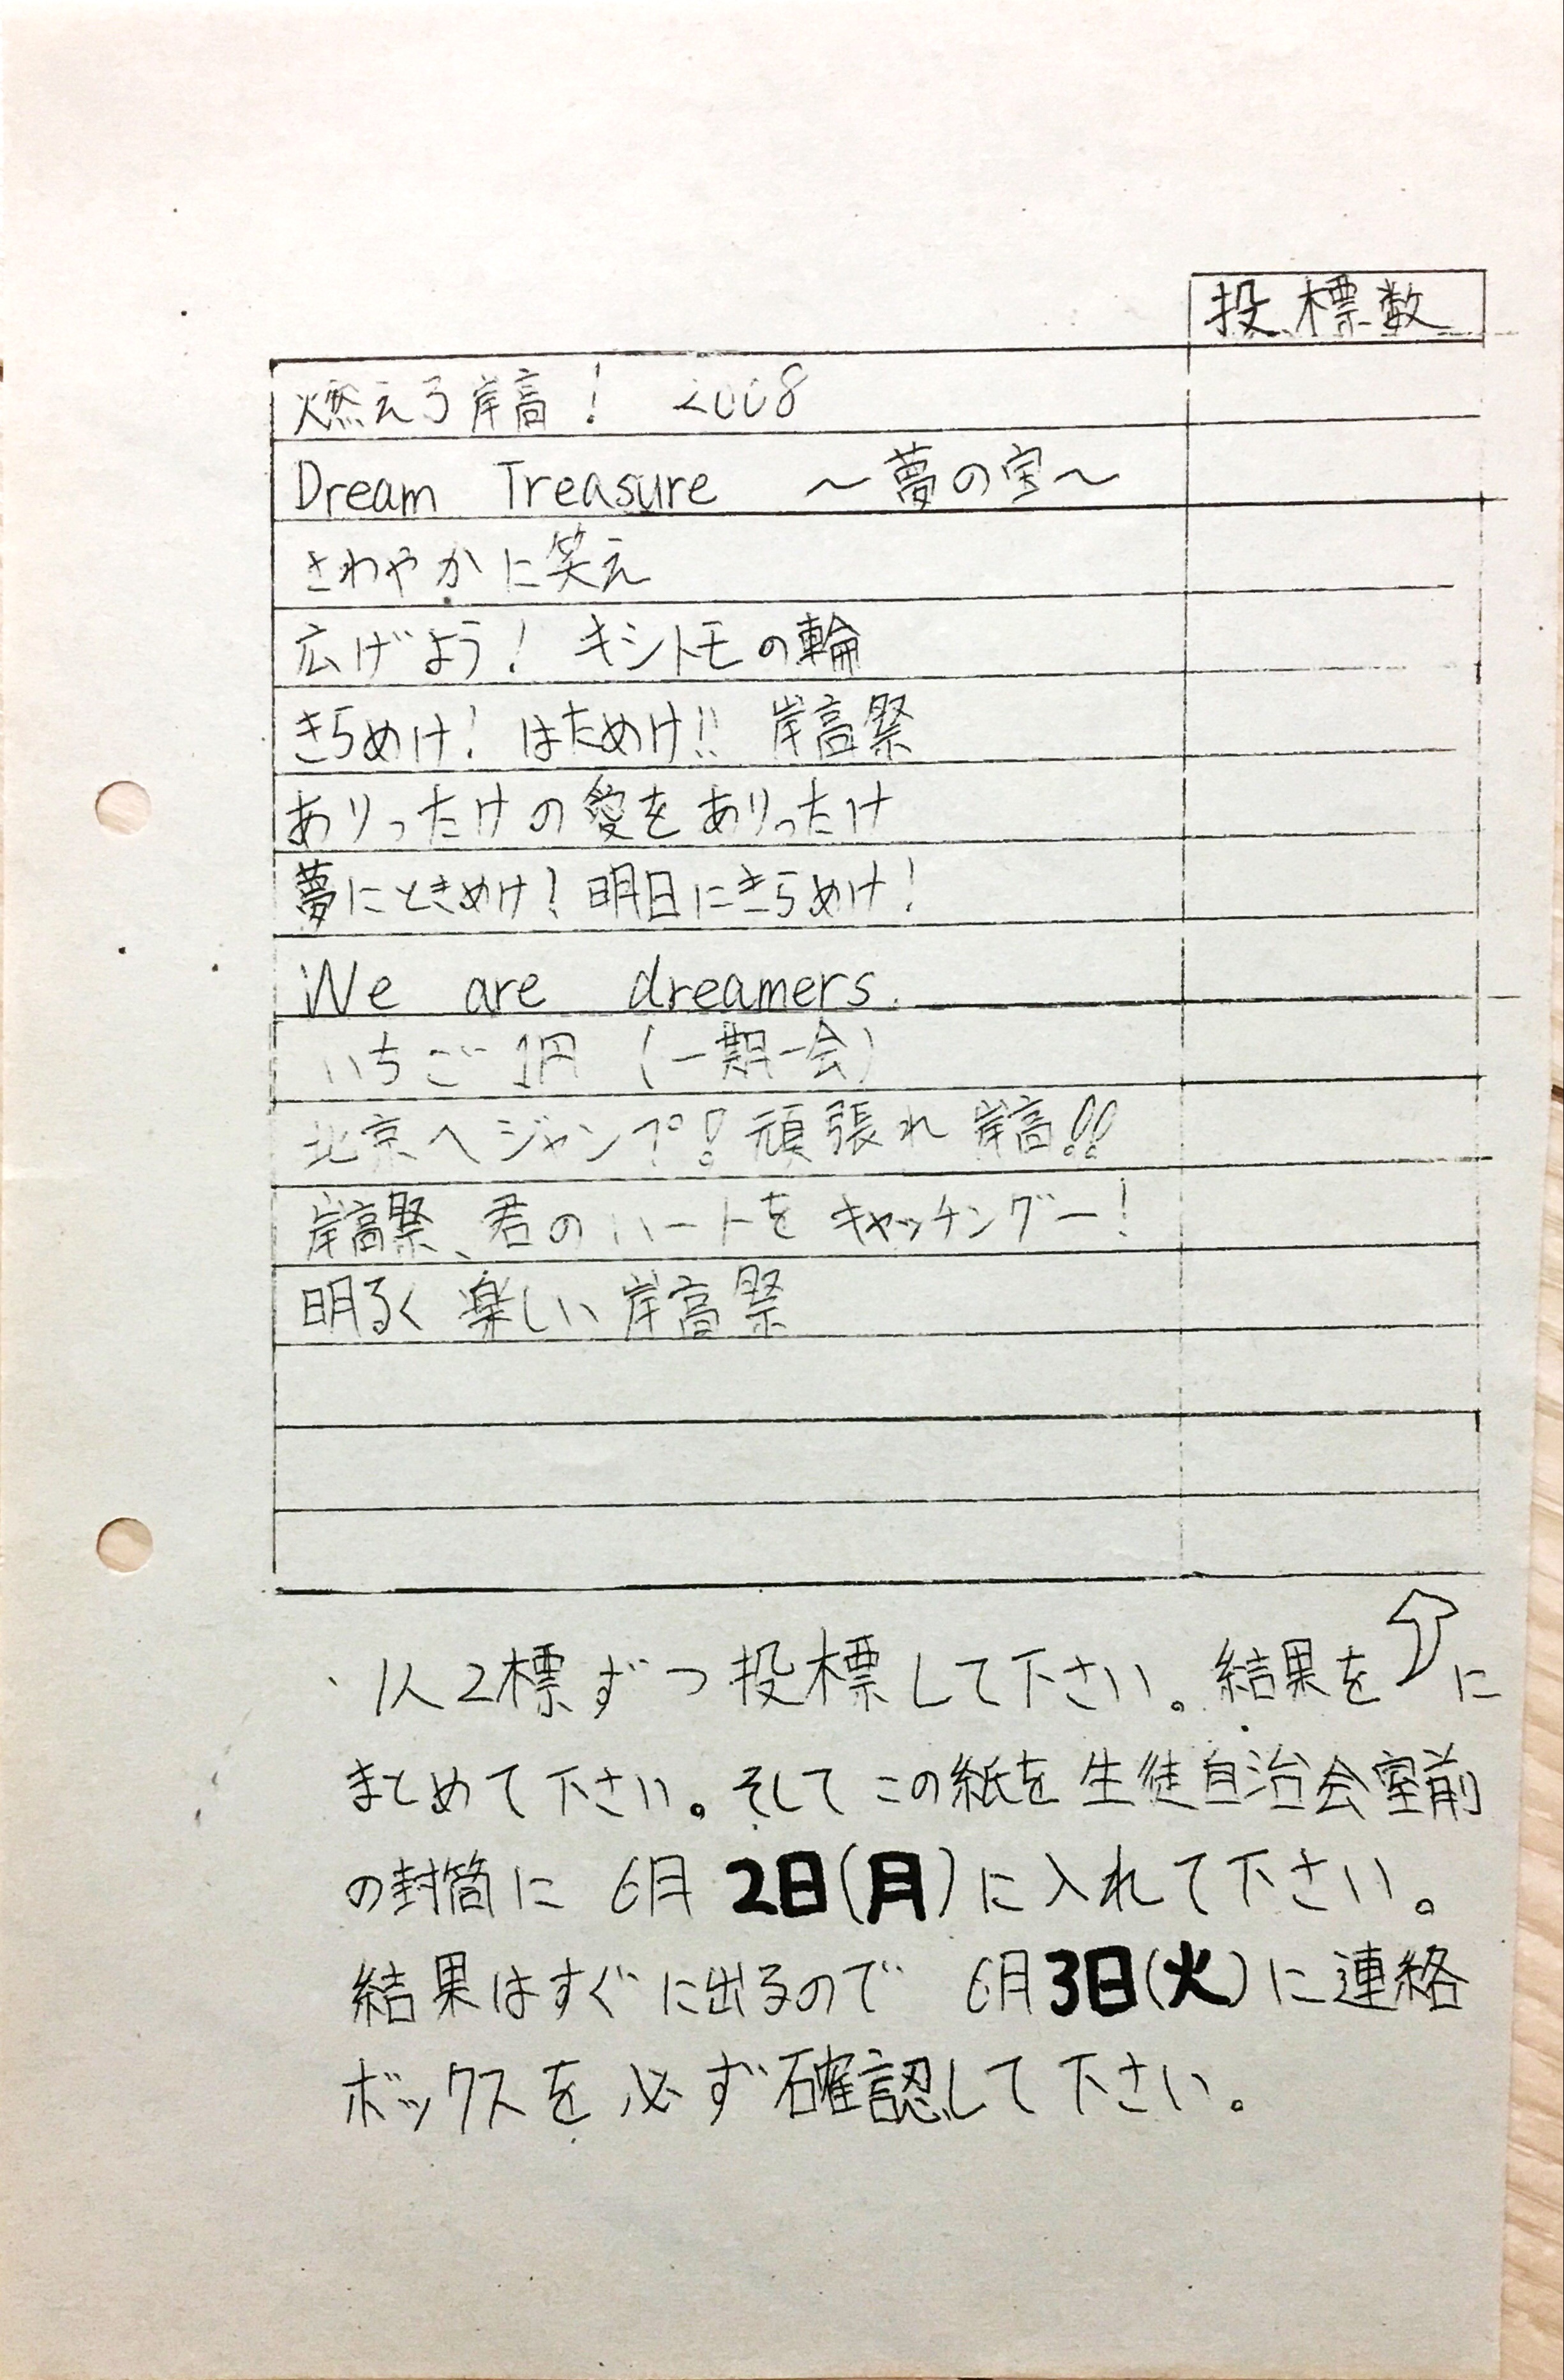 投標数
燃えろ岸高! 2008
Dream Treasure 〜夢の宝〜
さわやかに笑え
広げよう! キシトモの輪
きらめけ! はためけ!! 岸高祭
ありったけの愛をありったけ
夢にときめけ! 明日にきらめけ!
We are dreamers.
いちご1円 (一期一会)
北京へジャンプ! 頑張れ岸高!!
岸高祭、君のハートをキャッチングー!
明るく楽しい岸高祭
・1人2標ずつ投標して下さい。結果を⇧に
まとめて下さい。そしてこの紙を生徒自治会室前
の封筒に 6月2日(月)に入れて下さい。
結果はすぐに出るので 6月3日(火)に連絡
ボックスを必ず確認して下さい。